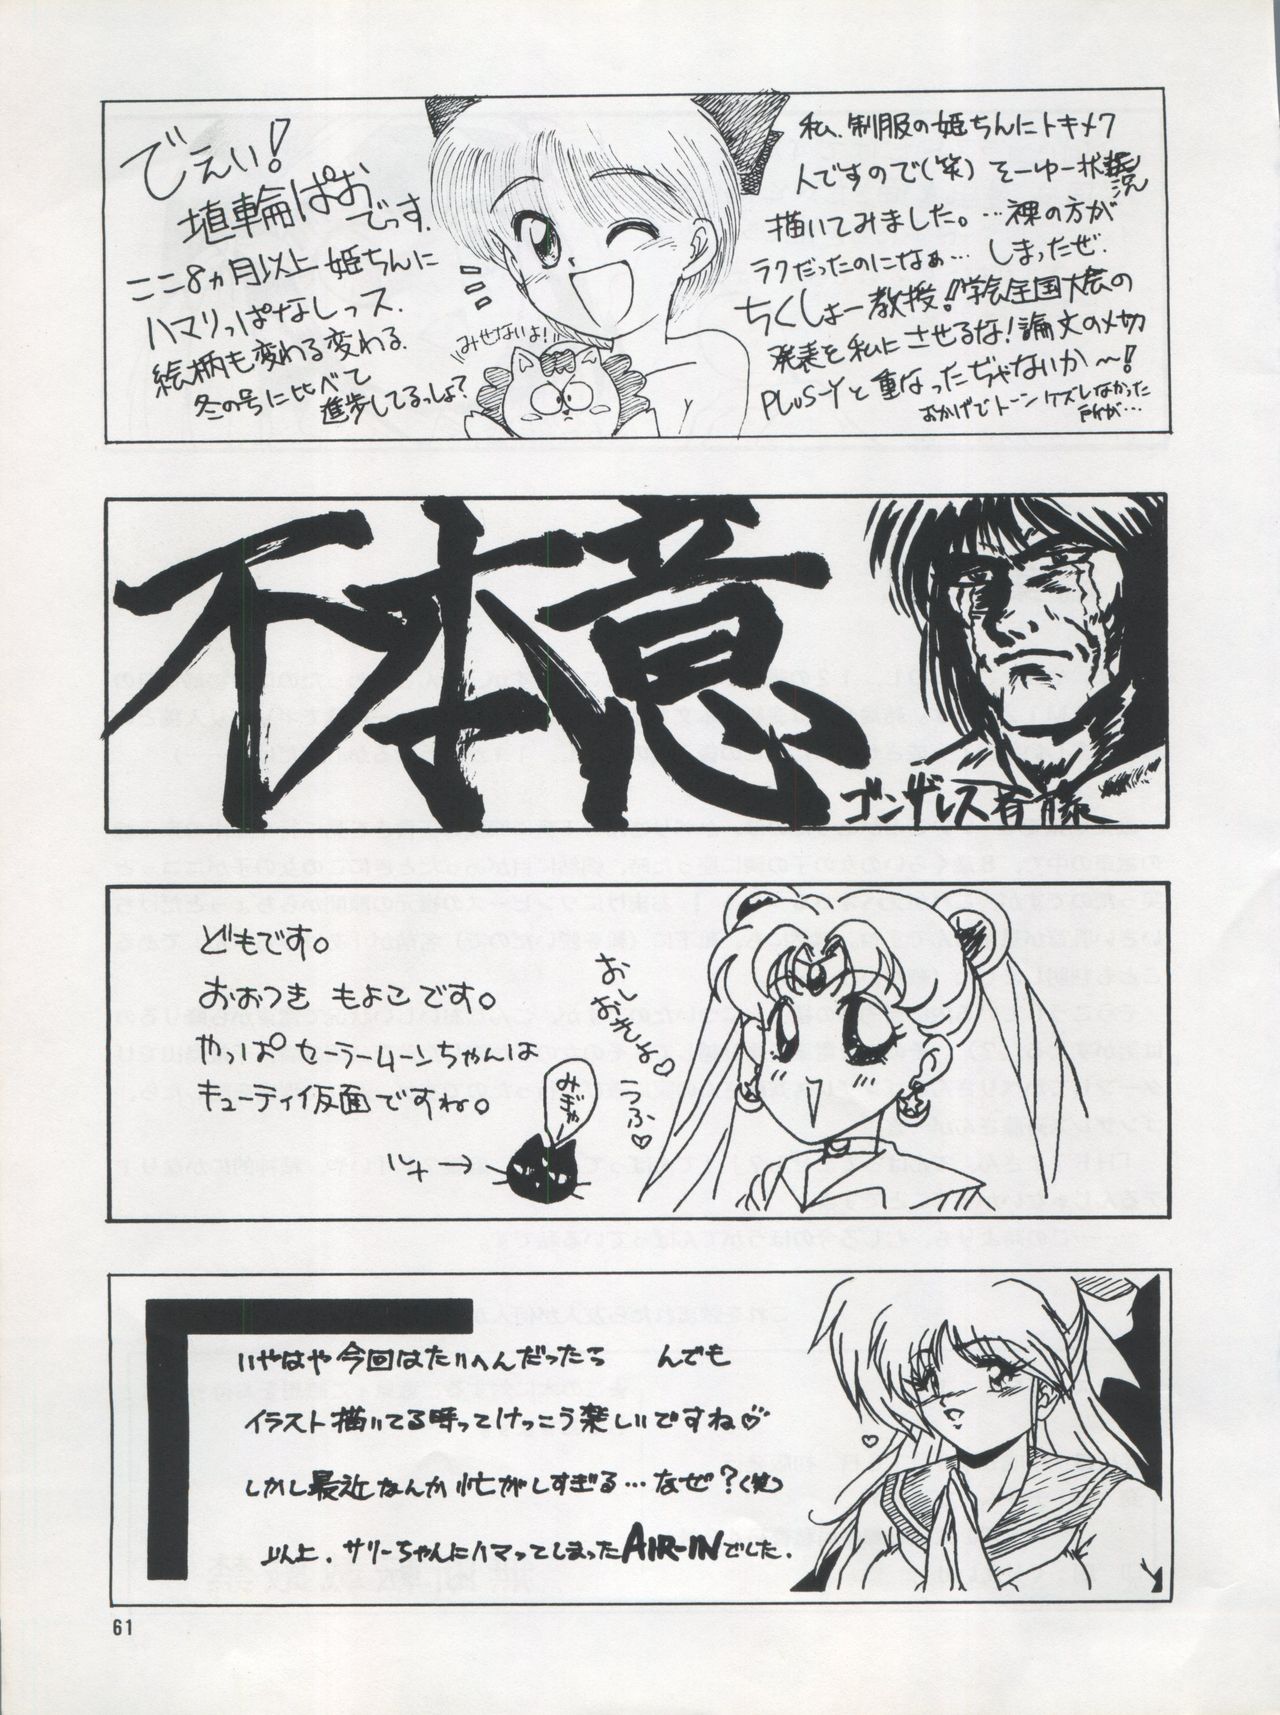 でぇい!
埴輪ぱお
でっす.
ここ8ヵ月以上 姫ちんに
ハマりっぱなしっス.
絵柄も変わる変わる.
冬の号に比べて
進歩してるっしょ?
みせないよ!
私、制服の姫ちんにトキメク
人ですので(笑) そーゆー状況
描いてみました。…裸の方が
ラクだったのになぁ… しまったぜ.
ちくしょー教授!!学会全国大会の
発表を私にさせるな!論文の〆切
PLUS-Yと重なったぢゃないか〜!
おかげでトーンケズしなかった
所が…
不本意
ゴンザレス斉藤
どもです。
おおつき もよこです。
やっぱセーラームーンちゃんは
キューティ仮面ですね。
ルナ→
みぎゃ
おし
おきよ♡
うふ♡
いやはや今回はたいへんだったら んでも
イラスト描いてる時ってけっこう楽しいですね♡
しかし最近なんか忙がしすぎる…なぜ?(笑)
以上、サリーちゃんにハマってしまったAIR-INでした.
61